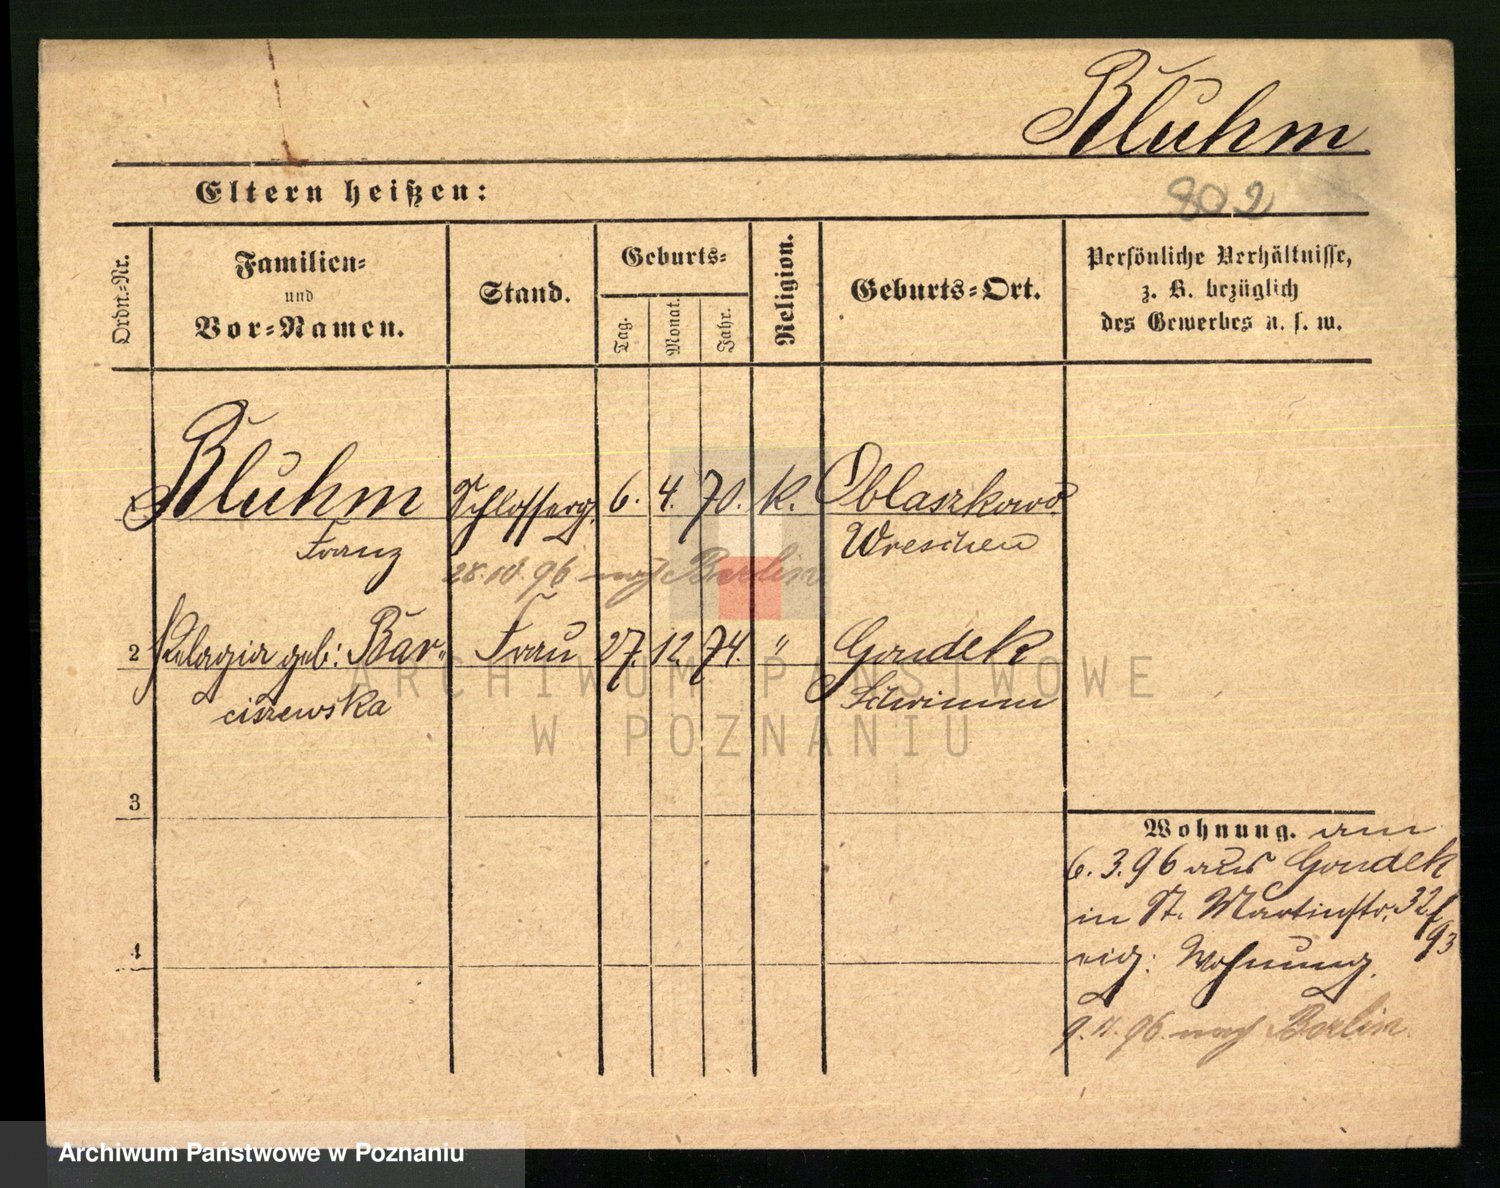 Bluhm
802
Eltern heißen:
Ordn.-Nr.
Familien-
und
Vor-Namen.
Stand.
Geburts-
Tag.
Monat.
Jahr.
Religion.
Geburts-Ort.
Persönliche Verhältnisse,
z. B. bezüglich
des Gewerbes u. s. w.
1 Bluhm Schlosserg. 6. 4. 70. K. Oblaszkowo
Franz Wreschen
28.10.96 nach Berlin
2 Pelagia geb: Bar- Frau 27. 12. 74. " Gondek
ciszewska Schrimm
3
4
Wohnung. am
6.3.96 aus Gondek
in St. Martinstr. 32/93
eig: Wohnung.
96 nach Berlin.
ARCHIWUM PAŃSTWOWE
W POZNANIU
Archiwum Państwowe w Poznaniu